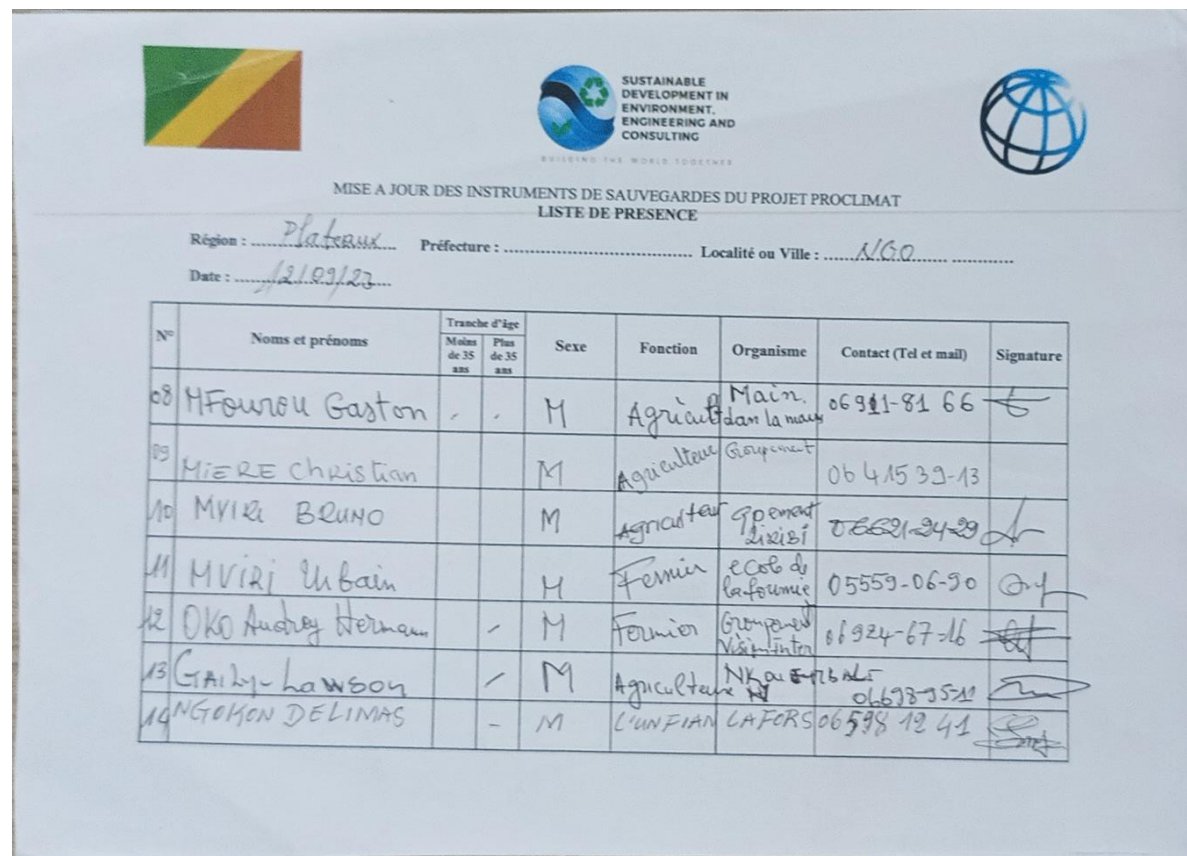 SUSTAINABLE
DEVELOPMENT IN
ENVIRONMENT,
ENGINEERING AND
CONSULTING
BUILDING THE WORLD TOGETHER
MISE A JOUR DES INSTRUMENTS DE SAUVEGARDES DU PROJET PROCLIMAT
LISTE DE PRESENCE
Région : Plateaux Préfecture : Localité ou Ville : NGO
Date : 12/09/23
N° Noms et prénoms Tranche d'âge Moins de 35 ans Plus de 35 ans Sexe Fonction Organisme Contact (Tel et mail) Signature
08 MFOUROU Gaston M Agricult Main dan la main 06911-81 66
09 MIERE Christian M Agriculteur Groupement 06 41539-13
10 MVIRI BRUNO M Agriculteur Gpement 06621-24-29
11 MVIRI Urbain M Fermier ecole de 05559-06-90
12 OKO Audrey Hermann - M Fermier Groupement Vision Inter 06924-67-16
13 GAILY-LAWSON - M Agriculteur 06698-95-11
14 NGOKON DELIMAS - M L'UNFIAN LAFORS 06598 12 41